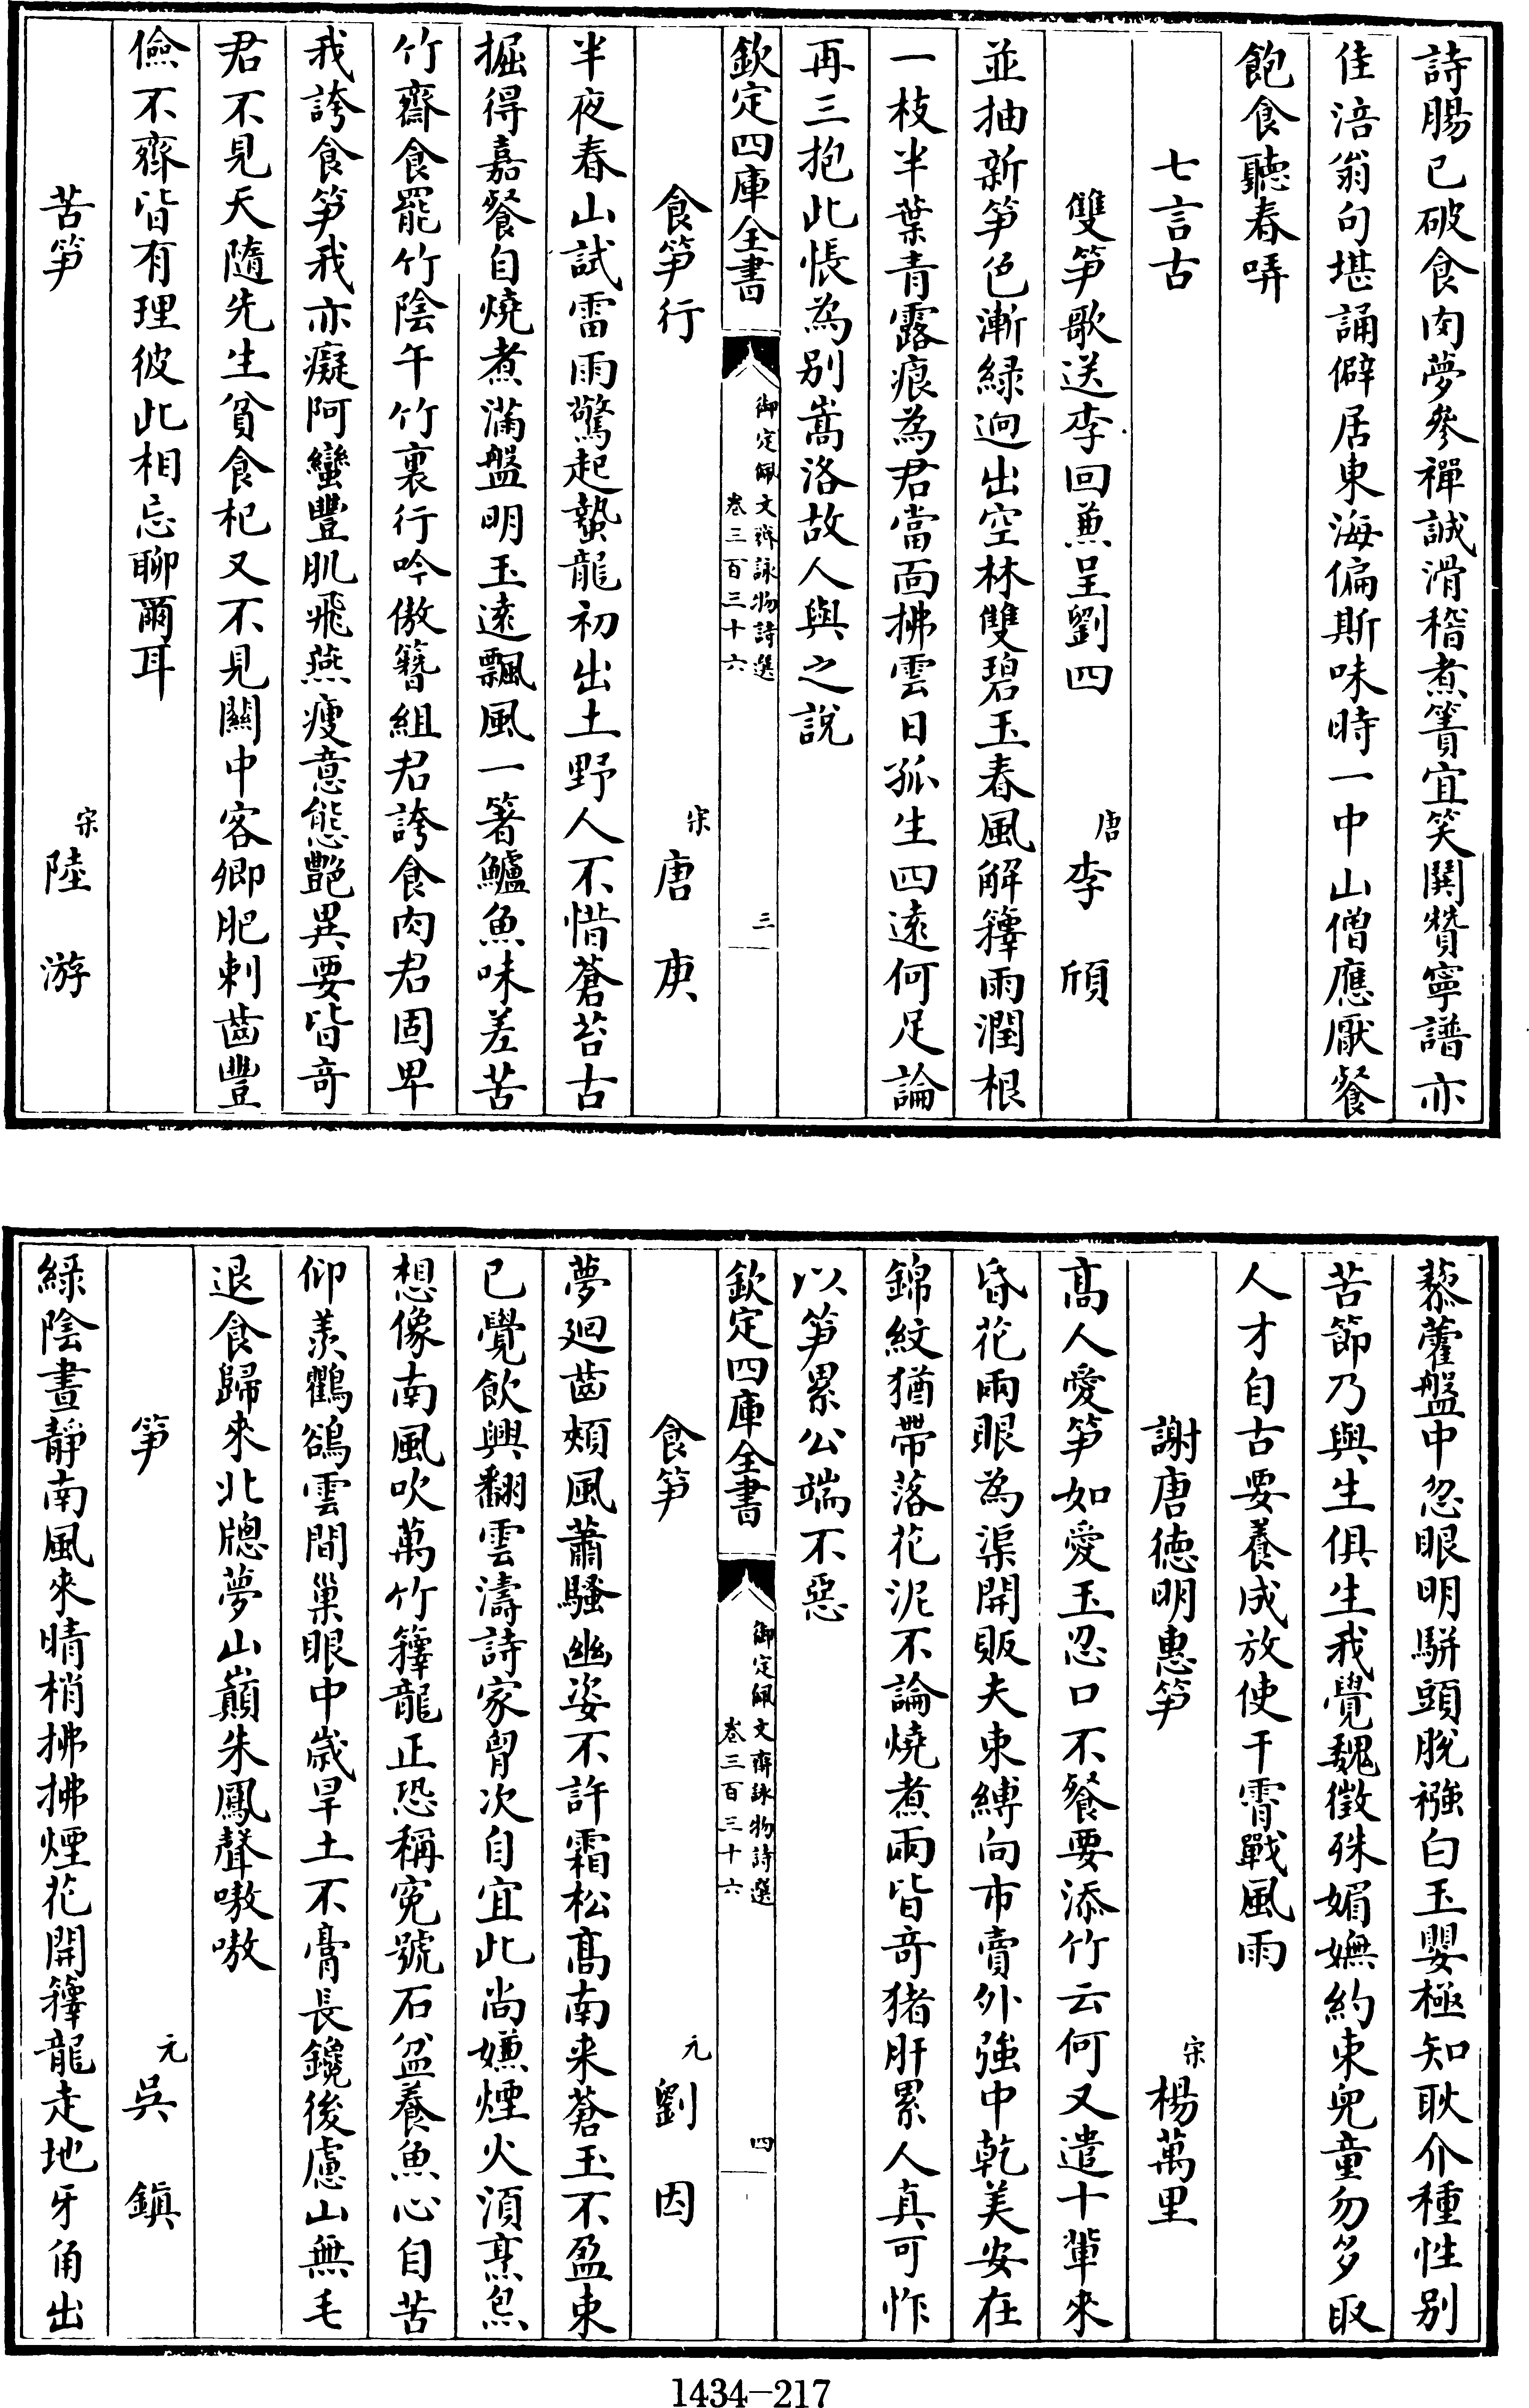 詩腸已破食肉夢參禪誠滑稽煮簀宜笑鬨贊寧譜亦
佳涪翁句堪誦僻居東海偏斯味時一中山僧應厭餐
飽食聽春哢
七言古
雙笋歌送李回兼呈劉四
唐李頎
並抽新笋色漸綠迥出空林雙碧玉春風解籜雨潤根
一枝半葉青露痕為君當面拂雲日孤生四遠何足論
再三抱此悵為别嵩洛故人與之說
欽定四庫全書
御定佩文齋詠物詩選
卷三百三十六
三
食笋行
宋唐庚
半夜春山試雷雨驚起蟄龍初出土野人不惜蒼苔古
掘得嘉餐自燒煮滿盤明玉遠飄風一箸鱸魚味差苦
竹齋食罷竹陰午竹裏行吟傲簪組君誇食肉君固卑
我誇食笋我亦癡阿蠻豐肌飛燕瘦意態艷異要皆奇
君不見天隨先生貧食杞又不見關中客卿肥刺齒豐
儉不齊皆有理彼此相忘聊爾耳
苦笋
宋陸游
藜藿盤中忽眼明駢頭脫襁白玉嬰極知耿介種性别
苦節乃與生俱生我覺魏徵殊媚嫵約束兒童勿多取
人才自古要養成放使干霄戰風雨
謝唐德明惠笋
宋楊萬里
髙人愛笋如愛玉忍口不餐要添竹云何又遣十輩來
昏花兩眼為渠開販夫束縛向市賣外強中乾美安在
錦紋猶帶落花泥不論燒煮兩皆奇猪肝累人真可怍
以笋累公端不惡
欽定四庫全書
御定佩文齋詠物詩選
卷三百三十六
四
食笋
元劉因
夢廻齒頰風蕭騷幽姿不許霜松髙南來蒼玉不盈束
已覺飲興翻雲濤詩家胷次自宜此尚嫌煙火湏烹炰
想像南風吹萬竹籜龍正恐稱寃號石盆養魚心自苦
仰羨鸛鶴雲間巢眼中歲旱土不膏長鑱後慮山無毛
退食歸來北牕夢山巔朱鳳聲嗷嗷
笋
元吳鎮
綠陰晝靜南風來晴梢拂拂煙花開籜龍走地牙角出
1434—217